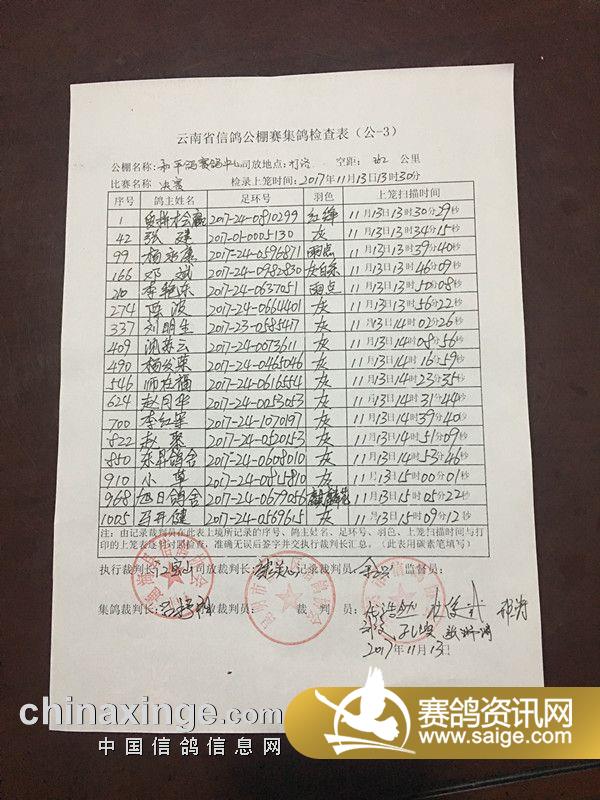 云南省信鸽公棚赛集鸽检查表（公-3）
公棚名称：和平鸽赛鸽中心 司放地点：打洛 空距： 公里
比赛名称：决赛 检录上笼时间：2017年11月13日13时30分
序号 鸽主姓名 足环号 羽色 上笼扫描时间
1 2017-24-0810299 红绛 11月13日13时30分29秒
42 张建 2017-01-0005130 灰 11月13日13时34分15秒
99 2017-24-0596871 雨点 11月13日13时39分40秒
166 邓斌 2017-24-0982830 灰白条 11月13日13时46分09秒
210 李艳东 2017-24-0637051 雨点 11月13日13时50分08秒
274 陈波 2017-24-0664401 灰 11月13日13时56分22秒
337 刘明生 2017-23-0585417 灰 11月13日14时02分26秒
409 2017-24-0073611 灰 11月13日14时08分56秒
490 杨发荣 2017-24-0465046 灰 11月13日14时16分59秒
546 2017-24-0616554 灰 11月13日14时23分35秒
624 赵月华 2017-24-0053053 灰 11月13日14时31分44秒
700 李红军 2017-24-1070197 灰 11月13日14时39分40秒
822 赵 2017-24-0520153 灰 11月13日14时51分09秒
850 东升鸽舍 2017-24-0608010 灰 11月13日14时53分46秒
910 小草 2017-24-0815810 灰 11月13日15时00分01秒
968 旭日鸽舍 2017-24-0679056 11月13日15时05分22秒
1005 2017-24-0569615 灰 11月13日15时09分12秒
注：由记录裁判员在此表上填所记录的序号、鸽主姓名、足环号、羽色、上笼扫描时间与打
印的上笼表逐对照检查，准确无误后签字并交执行裁判长汇总。（此表用碳素笔填写）
执行裁判长： 司放裁判长： 记录裁判员： 监督员：
集鸽裁判长： 裁判员：
2017年11月13日
chinaxinge.com
中国信鸽信息网
赛鸽资讯网
www.saige.com